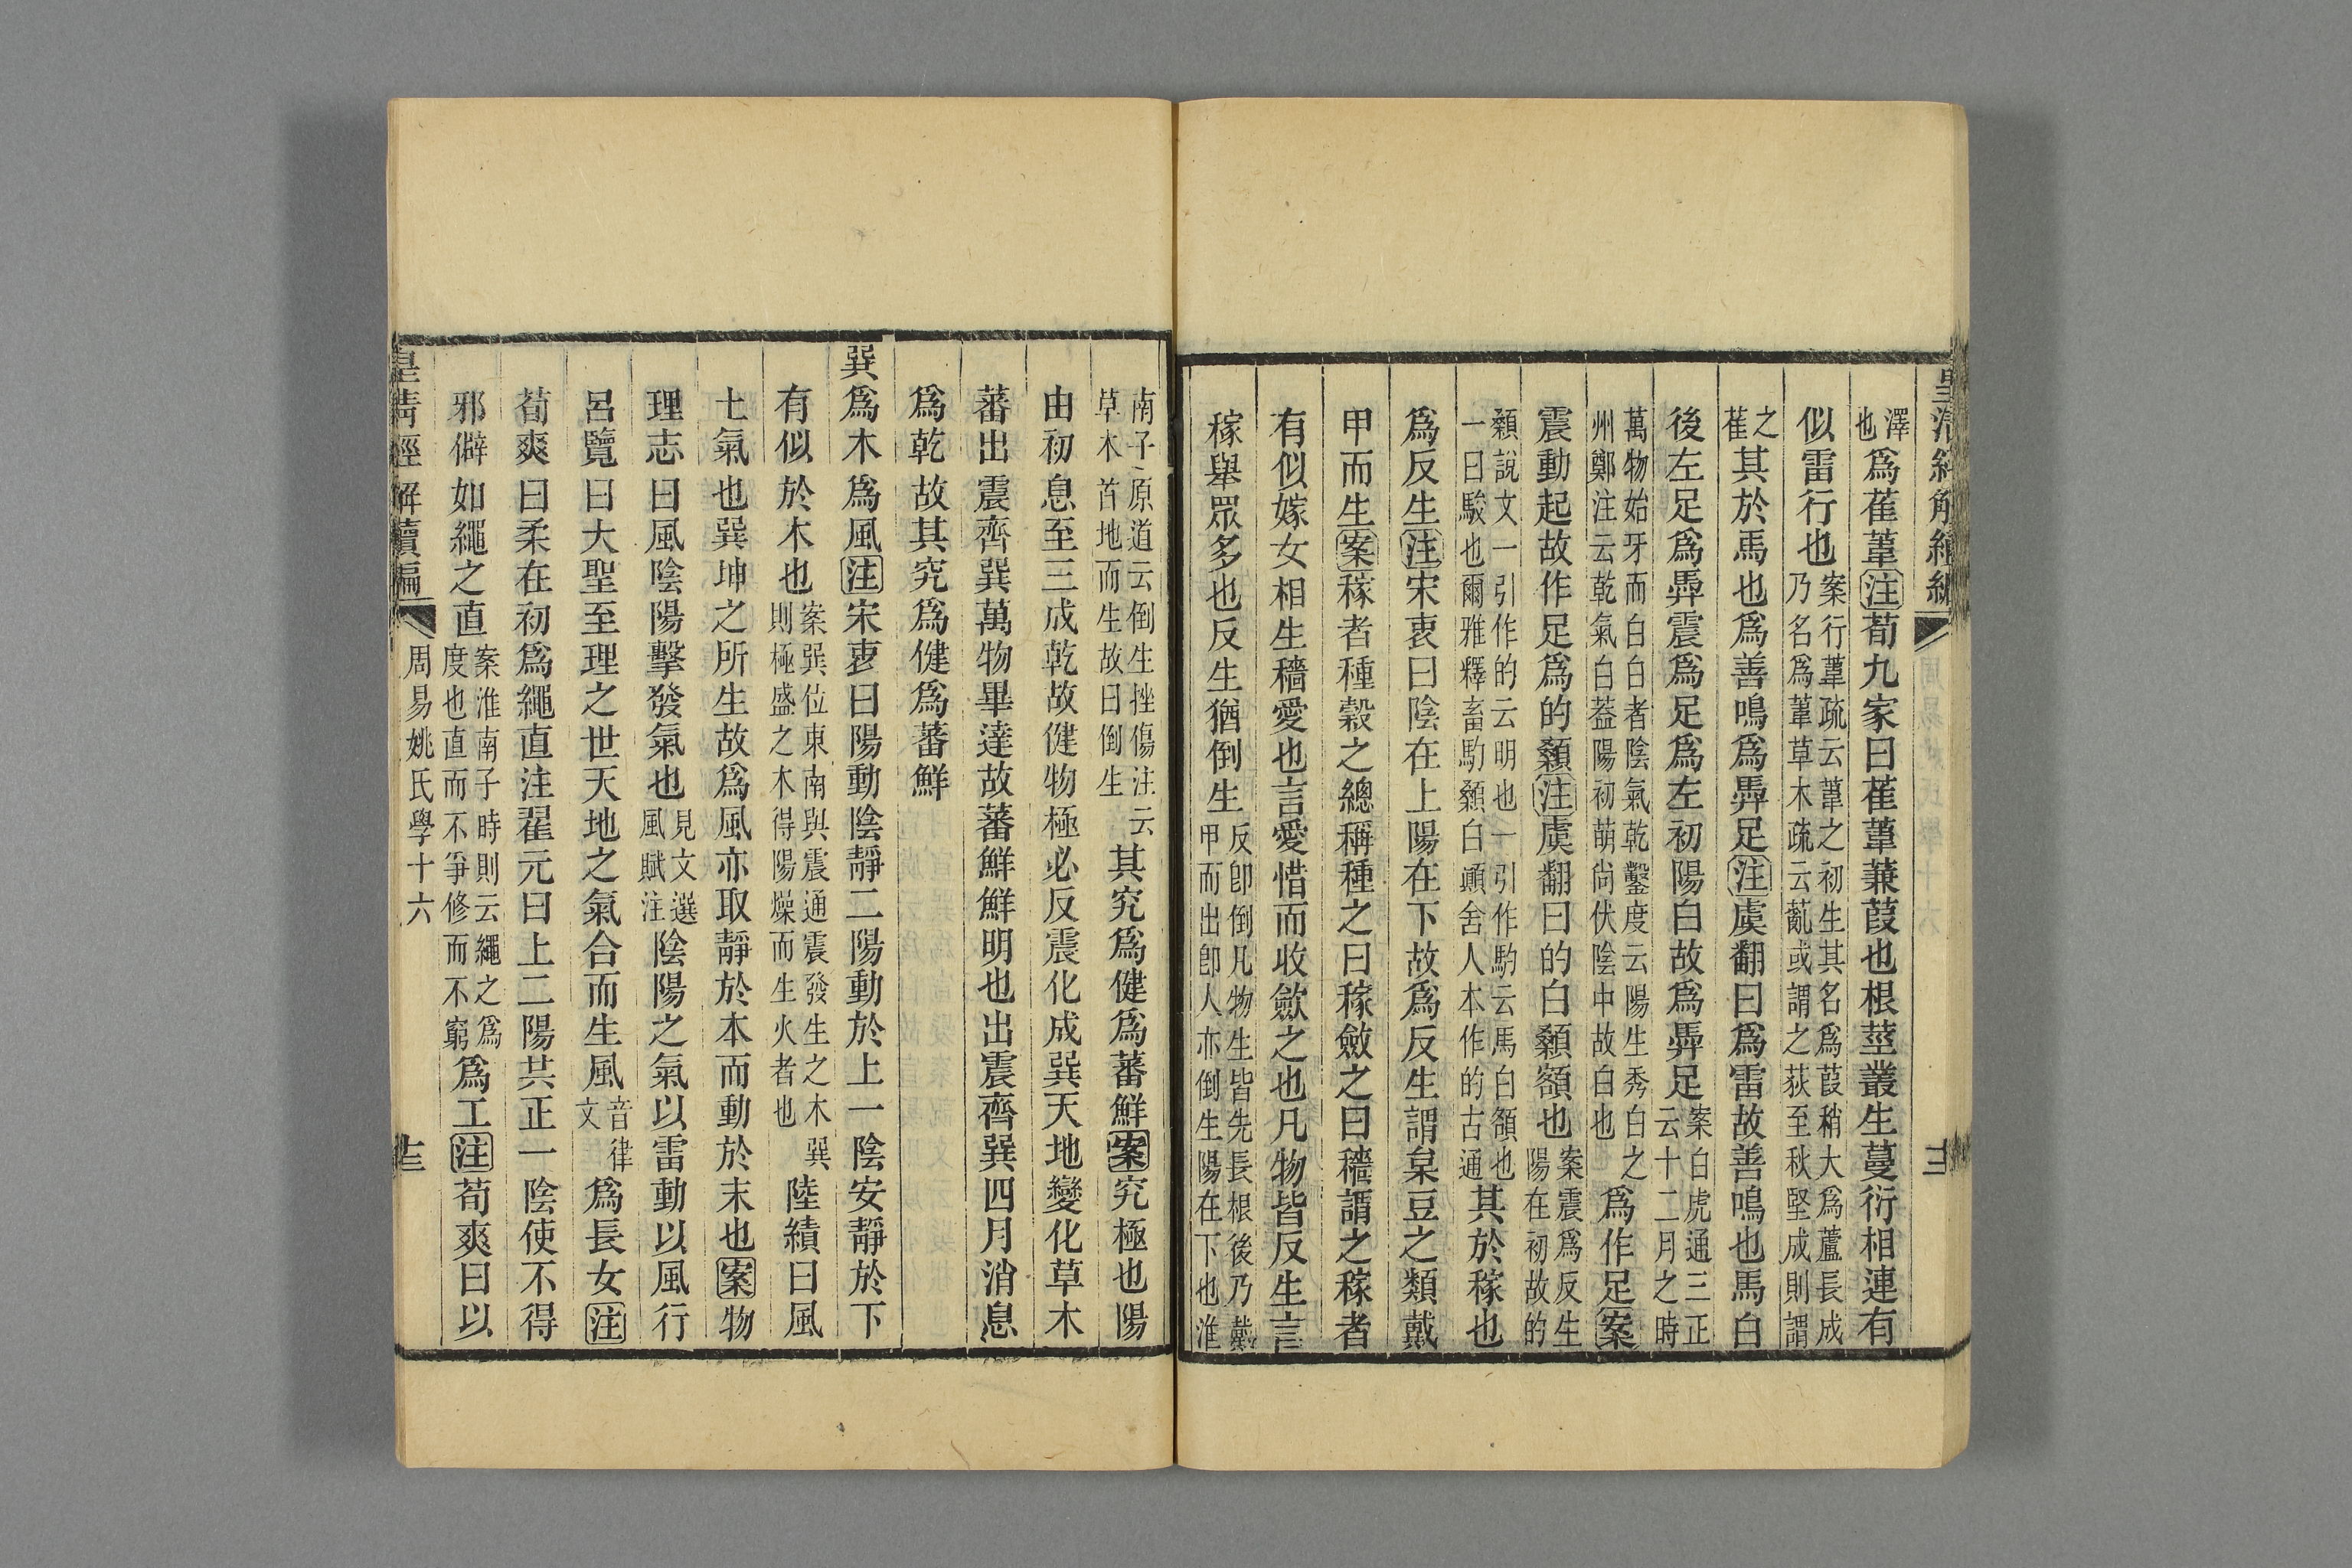 澤也爲萑葦注荀九家曰萑葦蒹葭也根莖叢生蔓衍相連有
似雷行也案行葦疏云葦之初生其名爲葭稍大爲蘆長成乃名爲葦草木疏云薍或謂之荻至秋堅成則謂
之萑其於馬也爲善鳴爲馵足注虞翻曰爲雷故善鳴也馬白
後左足爲馵震爲足爲左初陽白故爲馵足案白虎通三正云十二月之時
萬物始牙而白白者陰氣乾鑿度云陽生秀白之州鄭注云乾氣白葢陽初萌尙伏陰中故白也爲作足案
震動起故作足爲的顙注虞翻曰的白顙額也案震爲反生陽在初故的
顙說文一引作的云明也一引作馰云馬白額也一曰駿也爾雅釋畜馰顙白顚舍人本作的古通其於稼也
爲反生注宋衷曰陰在上陽在下故爲反生謂枲豆之類戴
甲而生案稼者種穀之總稱種之曰稼斂之曰穡謂之稼者
有似嫁女相生穡愛也言愛惜而收歛之也凡物皆反生言
稼舉眾多也反生猶倒生反卽倒凡物生皆先長根後乃戴甲而出卽人亦倒生陽在下也淮
南子原道云倒生挫傷注云草木首地而生故曰倒生其究爲健爲蕃鮮案究極也陽
由初息至三成乾故健物極必反震化成巽天地變化草木
蕃出震齊巽萬物畢達故蕃鮮鮮明也出震齊巽四月消息
爲乾故其究爲健爲蕃鮮
巽爲木爲風注宋衷曰陽動陰靜二陽動於上一陰安靜於下
有似於木也案巽位東南與震通震發生之木巽則極盛之木得陽燥而生火者也陸績曰風
土氣也巽坤之所生故爲風亦取靜於本而動於末也案物
理志曰風陰陽擊發氣也見文選風賦注陰陽之氣以雷動以風行
呂覽曰大聖至理之世天地之氣合而生風音律文爲長女注
荀爽曰柔在初爲繩直注翟元曰上二陽共正一陰使不得
邪僻如繩之直案淮南子時則云繩之爲度也直而不爭修而不窮爲工注荀爽曰以
皇淸經解續編 周易姚氏學十六 十三